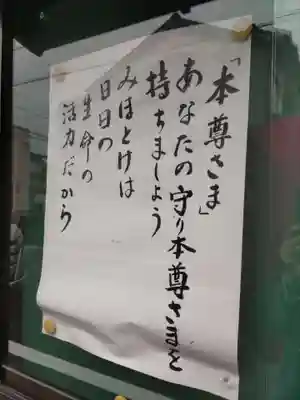 「本尊さま」
あなたの守り本尊さまを
持ちましょう
みほとけは
日日の
生命の
活力だから